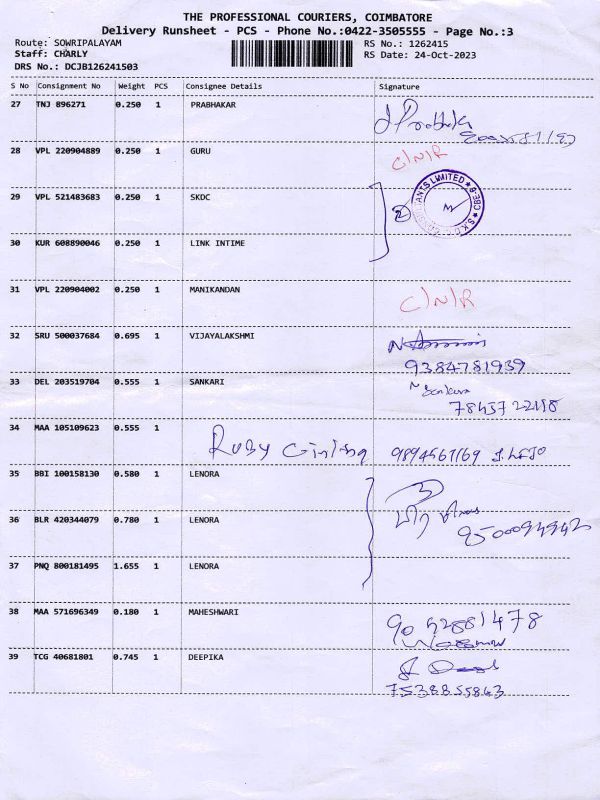 THE PROFESSIONAL COURIERS, COIMBATORE
Delivery Runsheet - PCS - Phone No.:0422-3505555 - Page No.:3
Route: SOWRIPALAYAM RS No.: 1262415
Staff: CHARLY RS Date: 24-Oct-2023
DRS No.: DCJB126241503
S No Consignment No Weight PCS Consignee Details Signature
27 TNJ 896271 0.250 1 PRABHAKAR
28 VPL 220904889 0.250 1 GURU C/N/R
29 VPL 521483683 0.250 1 SKDC
30 KUR 608890046 0.250 1 LINK INTIME
31 VPL 220904002 0.250 1 MANIKANDAN C/N/R
32 SRU 500037684 0.695 1 VIJAYALAKSHMI
9384781939
33 DEL 203519704 0.555 1 SANKARI
34 MAA 105109623 0.555 1 Ruby
35 BBI 100158130 0.580 1 LENORA
36 BLR 420344079 0.780 1 LENORA
37 PNQ 800181495 1.655 1 LENORA
38 MAA 571696349 0.180 1 MAHESHWARI
39 TCG 40681801 0.745 1 DEEPIKA
7538855863